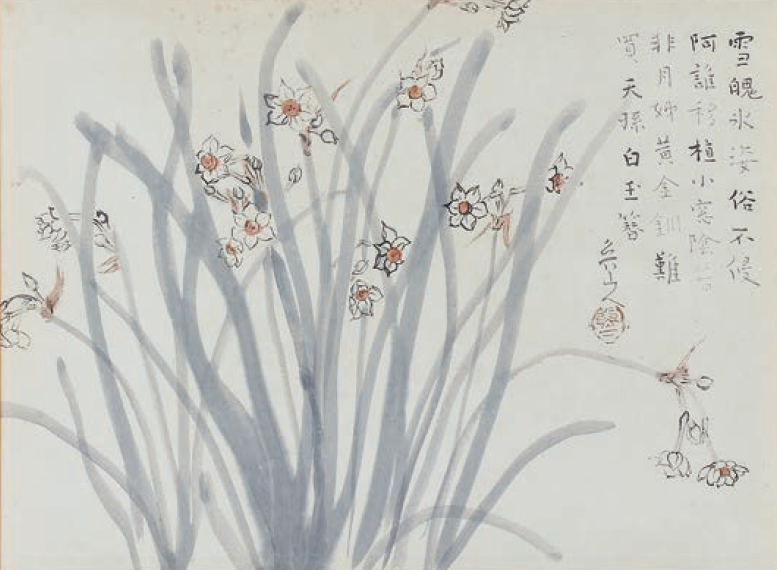 雪魄氷姿俗不侵
阿誰移植小窓陰若
非月姉黄金釧難
買天孫白玉簪